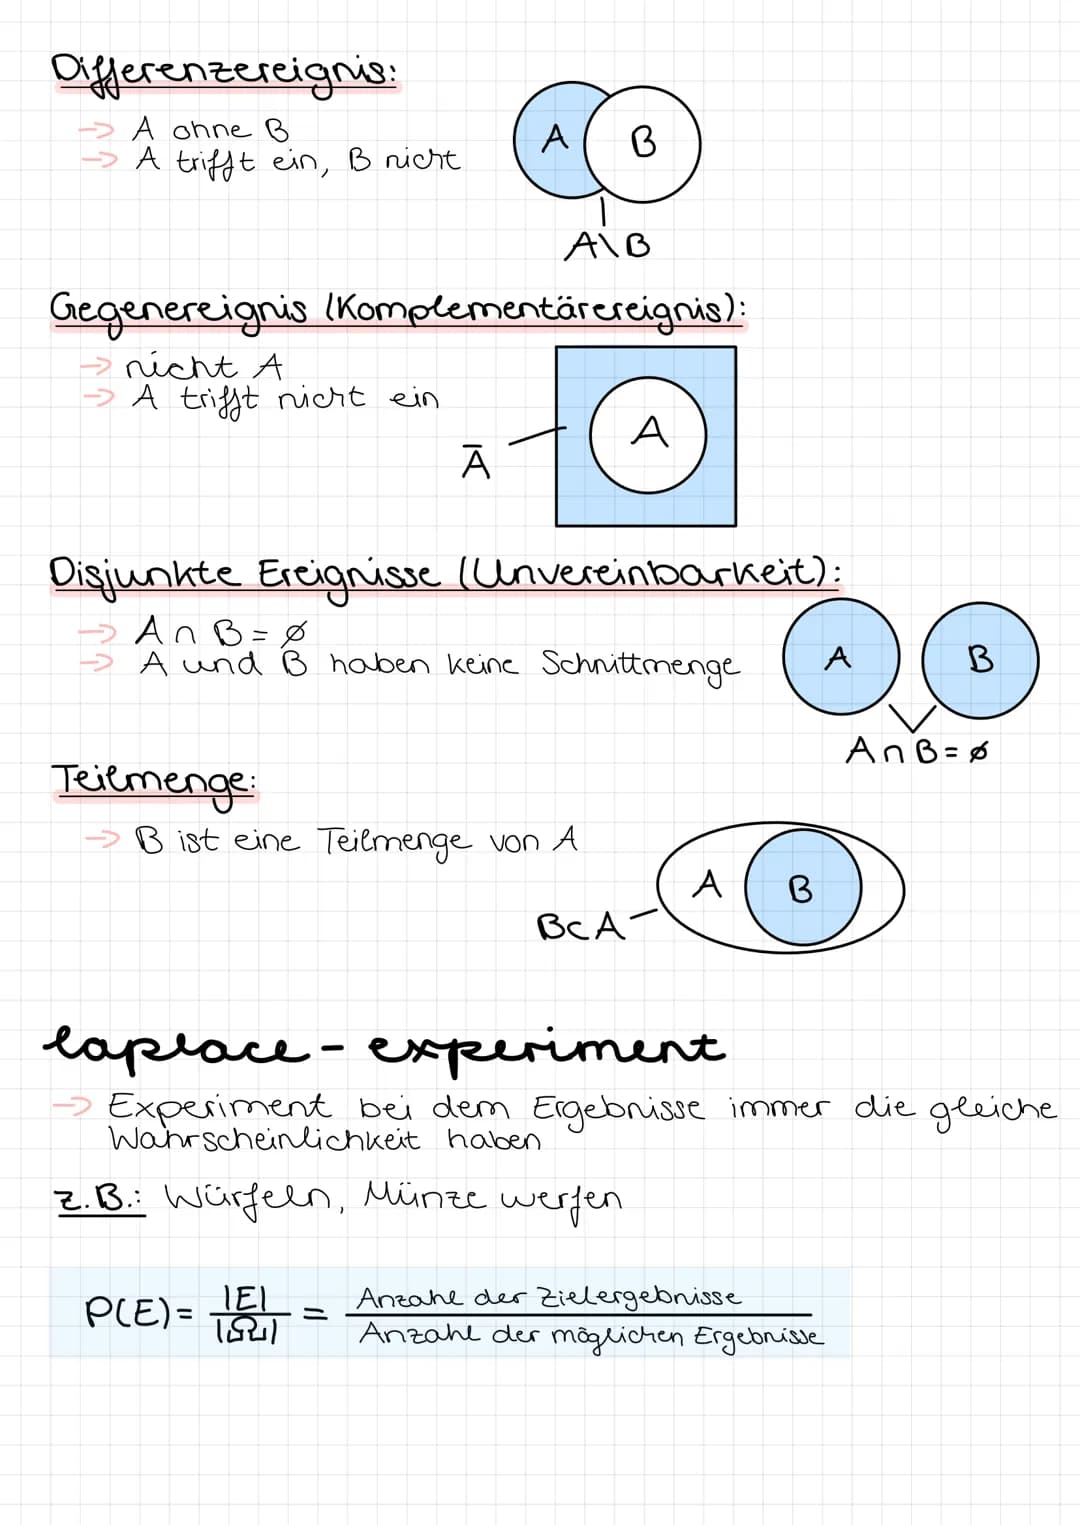 Differenzereignis:
-> A ohne B
-> A trifft ein, B nicht
A B
A\B
Gegenereignis (Komplementärereignis):
-> nicht A
-> A trifft nicht ein
A
Ā
Disjunkte Ereignisse (Unvereinbarkeit):
-> A∩B=∅
-> A und B haben keine Schnittmenge
A B
A∩B=∅
Teilmenge:
-> B ist eine Teilmenge von A
A B
B⊂A
laplace-experiment
-> Experiment bei dem Ergebnisse immer die gleiche
Wahrscheinlichkeit haben
z.B.: Würfeln, Münze werfen
P(E) = |E| / |Ω| = Anzahl der Zielergebnisse / Anzahl der möglichen Ergebnisse